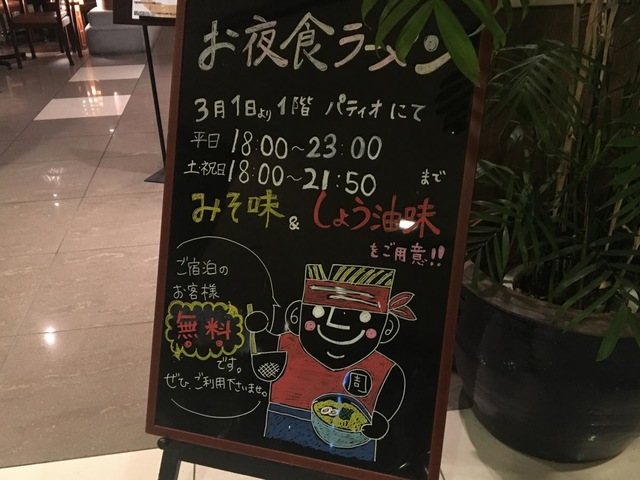 お夜食ラーメン
3月1日より1階 パティオにて
平日 18:00~23:00
土・祝日 18:00~21:50 まで
みそ味 & しょう油味
をご用意!!
ご宿泊の
お客様
無料
です。
ぜひ、ご利用下さいませ。
周